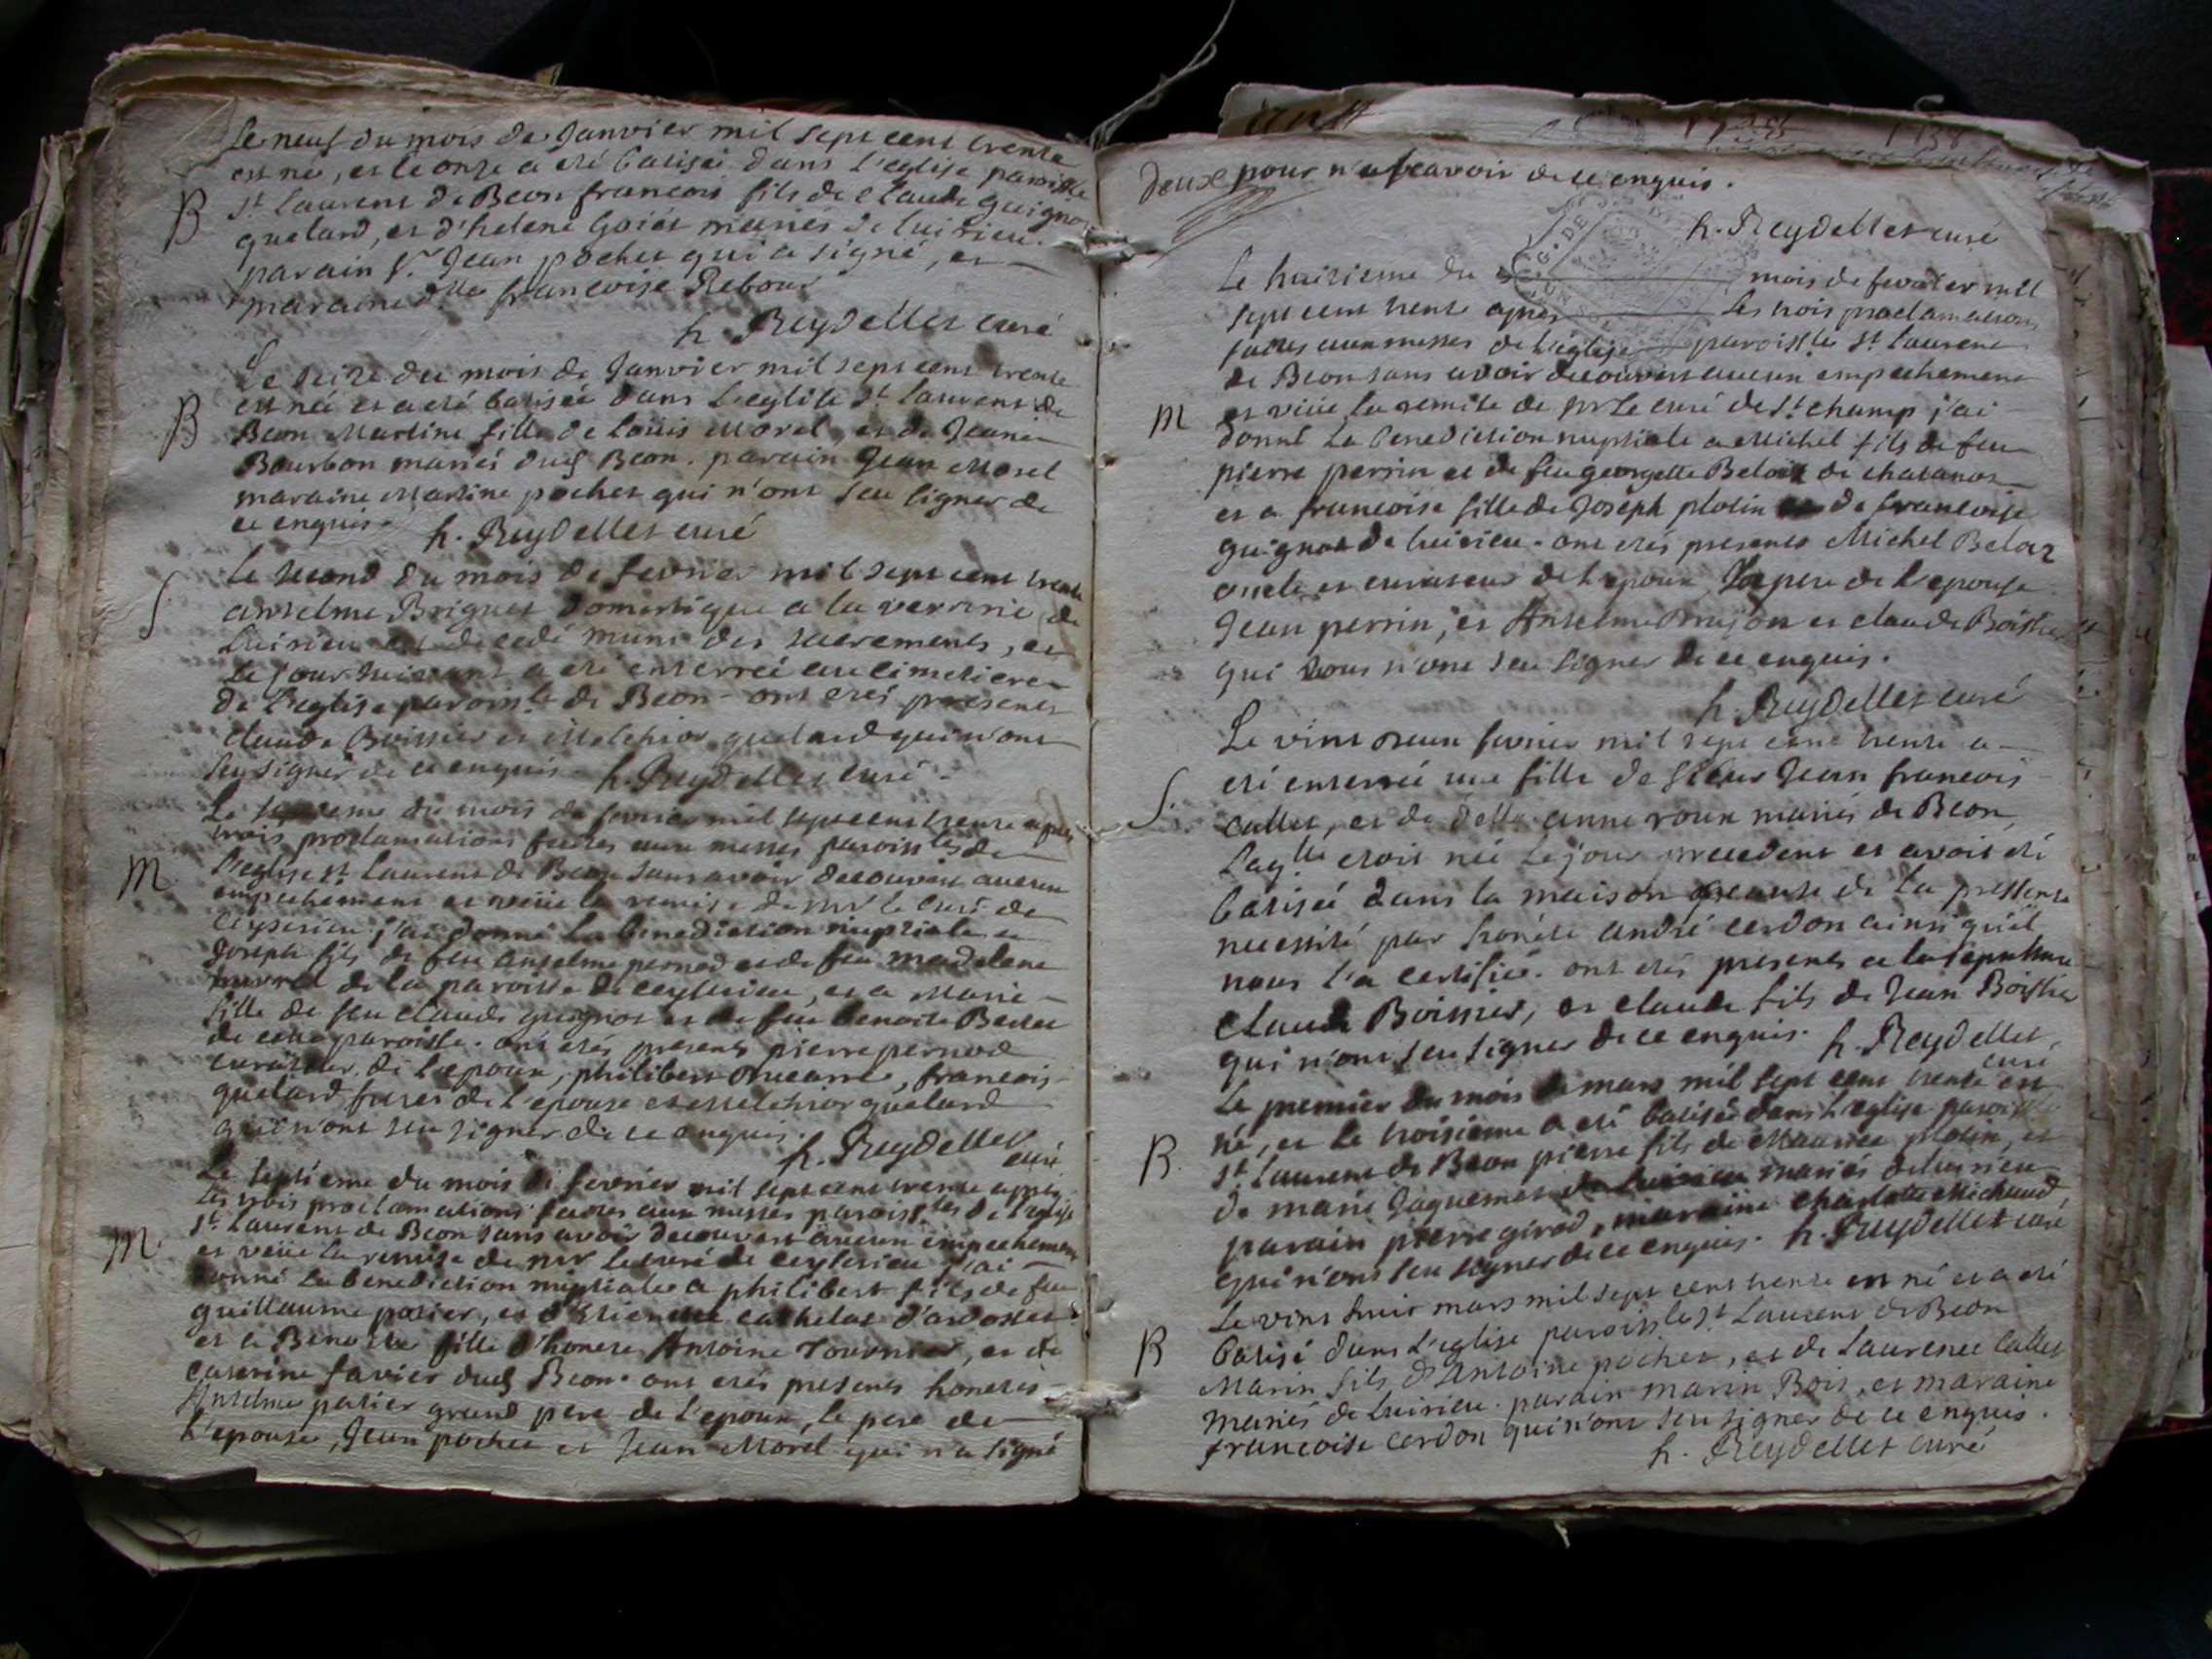 Le neuf du mois de Janvier mil sept cent trente
est né, et le onze a eté batisé dans l'eglise paroisslle
B
St Laurent de Beon francois fils de Claude guignot
guelard, et d'helene Goiet mariés de luirieu.
parain Sr Jean pochet qui a signé, et
maraine dlle francoise Rebour
h Reydellet curé
Le seize du mois de Janvier mil sept cent trente
est née et a eté batisée dans l'eglise St laurent de
B
Beon Martine fille de loüis Morel, et de Jeane
Bourbon mariés dud Beon. parain Jean Morel
maraine Martine pochet qui n'ont seu signer de
ce enquis. h. Reydellet curé
Le second du mois de fevrier mil sept cent trente
S
anselme Briguet domestique a la verrerie de
luirieu est decedé muni des sacrements, et
le jour suivant a eté enterré au cimetiere
de l'eglise paroisle de Beon - ont etés presents
claude Boissier et Melchior guelard qui n'ont
seu signer de ce enquis h. Reydellet curé -
Le septieme du mois de fevrier mil sept cent trente apres
trois proclamations faites aux messes paroissles de
M
l'eglise St Laurent de Beon sans avoir decouvert aucun
empechement et veüe la remise de mr le curé de
Ceyserieu j'ai donné la benediction nuptiale a
Joseph fils de feu anselme pernod et de feu madelene
de la paroisse de ceyserieu, et a Marie
fille de feu claude guignot et de feu benoite
de cette paroisse. ont etés presents pierre pernod
curateur de l'epoux, philibert, francois
guelard freres de l'epouse et Melchior guelard
qui n'ont seu signer de ce enquis. h. Reydellet
curé
Le septieme du mois de fevrier mil sept cent trente apres
les trois proclamations faites aux messes paroissles de l'eglise
St Laurent de Beon sans avoir decouvert aucun empechement
M
et veüe la remise de mr le curé de ceyserieu j'ai
donné la benediction nuptiale a philibert fils de feu
guillaume patier, et d'Etiennete cathelat d'ardosset
et a Benoite fille d'honete Antoine Tournier, et de
caterine favier dud Beon. ont etés presents honetes
Antelme patier grand pere de l'epoux, le pere de
l'epouse, Jean pochet et Jean Morel qui n'a signé
deux pour n'a sçavoir de ce enquis.
h. Reydellet curé
Le huitieme du mois de fevrier mil
sept cent trente apres les trois proclamations
faites aux messes de l'eglise paroissle St Laurent
de Beon sans avoir decouvert aucun empechement
M
et veüe la remise de mr le curé de St champ j'ai
donné la benediction nuptiale a Michel fils de feu
pierre perrin et de feu georgette Beloix de chatanot
et a francoise fille de Joseph plotin de francoise
guignot de luirieu. ont etés presents Michel Beloz
oncle et curateur de l'epoux, le pere de l'epouse
Jean perrin, et Antelme et claude Boissier
qui tous n'ont seu signer de ce enquis.
h. Reydellet curé
Le vint deux fevrier mil sept cent trente a
eté enterrée une fille de sieur Jean francois
S.
callet, et de delle anne roux mariés de Beon,
laqlle etoit née le jour precedent et avoit eté
batisée dans la maison a cause de la pressente
necessité par honete andré cerdon ainsi qu'il
nous l'a certifié. ont etés presents a la sepulture
Claude Boissier, et claude fils de Jean Boissier
qui n'ont seu signer de ce enquis. h. Reydellet,
curé
Le premier du mois de mars mil sept cent trente est
né, et le troisieme a eté batisé dans l'eglise paroissle
B.
St Laurent de Beon pierre fils de Maurice plotin, et
de marie Jaquemet mariés de luirieu
parain pierre girod, maraine charlotte Michaud,
qui n'ont seu signer de ce enquis. h. Reydellet curé
Le vint huit mars mil sept cent trente est né et a eté
B
batisé dans l'eglise paroissle St Laurent de Beon
Marin fils d'Antoine pochet, et de Laurence Callet
mariés de luirieu. parain marin Bois, et maraine
francoise cerdon qui n'ont seu signer de ce enquis.
h. Reydellet curé